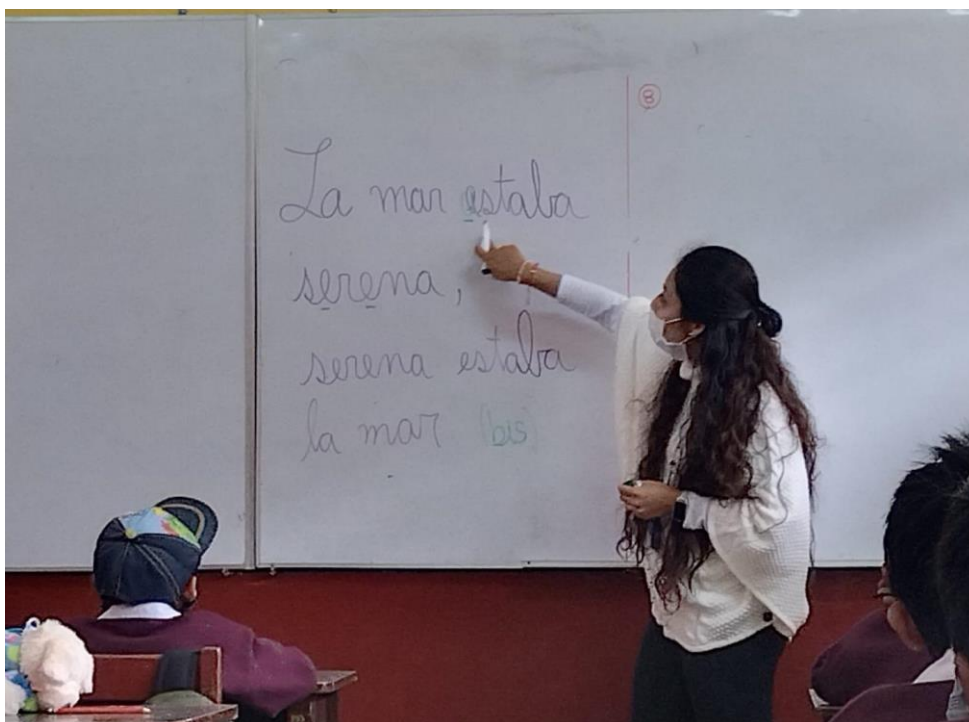 La mar estaba
serena,
serena estaba
la mar (bis)
8